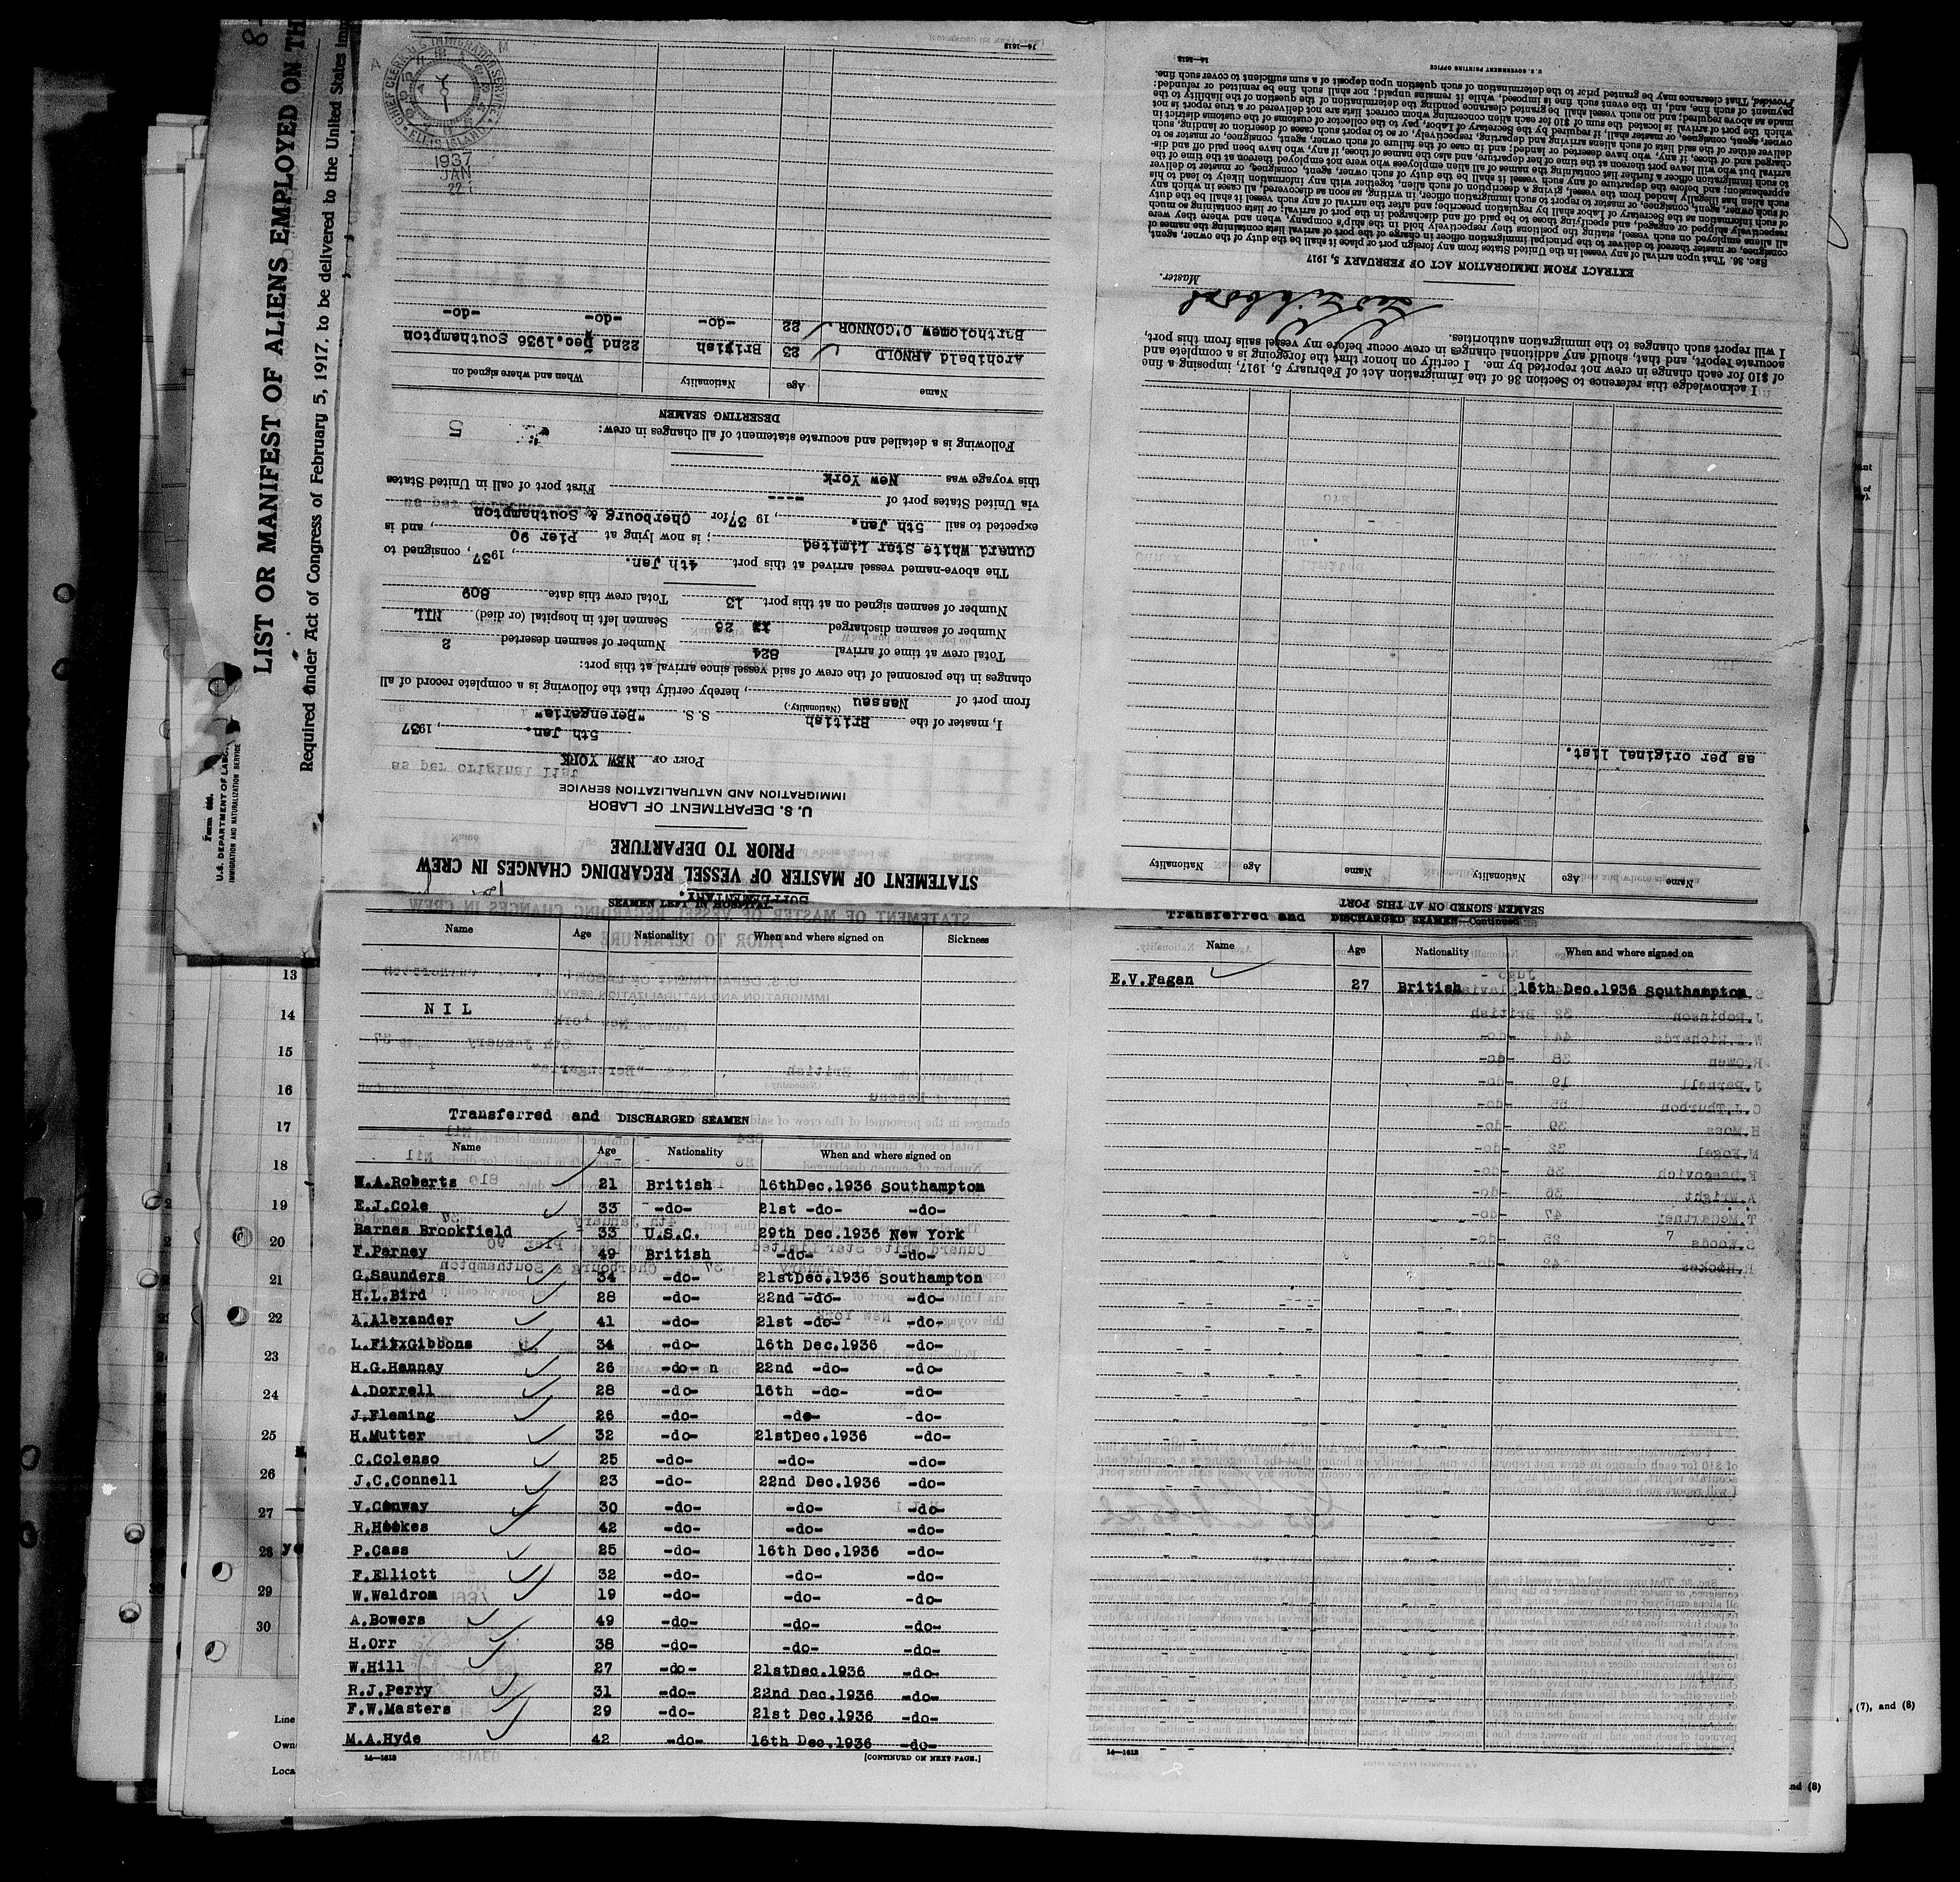 LIST OR MANIFEST OF ALIENS EMPLOYED ON TH
Required under Act of Congress of February 5, 1917, to be delivered to the United States
Form 680.
U.S. DEPARTMENT OF LABOR
IMMIGRATION AND NATURALIZATION SERVICE
SUPPLEMENTARY.
STATEMENT OF MASTER OF VESSEL REGARDING CHANGES IN CREW
PRIOR TO DEPARTURE
U. S. DEPARTMENT OF LABOR
IMMIGRATION AND NATURALIZATION SERVICE
PORT OF NEW YORK
5th Jan., 1937
I, master of the British S. S. "Berengaria"
(Nationality.)
from port of Nassau, hereby certify that the following is a complete record of all
changes in the personnel of the crew of said vessel since arrival at this port:
Total crew at time of arrival 824 Number of seamen deserted 2
Number of seamen discharged 26 Seamen left in hospital (or died) NIL
Number of seamen signed on at this port 13 Total crew this date 809
The above-named vessel arrived at this port 4th Jan., 1937, consigned to
Cunard White Star Limited; is now lying at Pier 90, and is
expected to sail 5th Jan., 1937 for Cherbourg & Southampton
via United States port of ---- First port of call in United States
this voyage was New York
Following is a detailed and accurate statement of all changes in crew: 5
DESERTING SEAMEN
Name Age Nationality When and where signed on
Archibald ARNOLD 23 British 22nd Dec.1936 Southampton
Bartholomew O'CONNOR. 22 -do- -do- -do-
CHIEF CLERK U.S. IMMIGRATION SERVICE
ELLIS ISLAND
1937
JAN
22
14—1613
SEAMEN SIGNED ON AT THIS PORT
Name Age Nationality Name Age Nationality
as per original list.
I acknowledge this reference to Section 36 of the Immigration Act of February 5, 1917, imposing a fine
of $10 for each change in crew not reported by me. I certify on honor that the foregoing is a complete and
accurate report, and that, should any additional changes in crew occur before my vessel sails from this port,
I will report such changes to the immigration authorities.
Master.
EXTRACT FROM IMMIGRATION ACT OF FEBRUARY 5, 1917
SEC. 36. That upon arrival of any vessel in the United States from any foreign port or place it shall be the duty of the owner, agent,
consignee, or master thereof to deliver to the principal immigration officer in charge of the port of arrival lists containing the names of
all aliens employed on such vessel, stating the positions they respectively hold in the ship's company, when and where they were
respectively shipped or engaged, and specifying those to be paid off and discharged in the port of arrival; or lists containing so much
of such information as the Secretary of Labor shall by regulation prescribe; and after the arrival of any such vessel it shall be the duty
of such owner, agent, consignee, or master to report to such immigration officer, in writing, as soon as discovered, all cases in which any
such alien has illegally landed from the vessel, giving a description of such alien, together with any information likely to lead to his
apprehension; and before the departure of any such vessel it shall be the duty of such owner, agent, consignee, or master to deliver
to such immigration officer a further list containing the names of all alien employees who were not employed thereon at the time of the
arrival but who will leave port thereon at the time of her departure, and also the names of those, if any, who have been paid off and dis-
charged and of those, if any, who have deserted or landed; and in case of the failure of such owner, agent, consignee, or master so to
deliver either of the said lists of such aliens arriving and departing, respectively, or so to report such cases of desertion or landing, such
owner, agent, consignee, or master shall, if required by the Secretary of Labor, pay to the collector of customs of the customs district in
which the port of arrival is located the sum of $10 for each alien concerning whom correct lists are not delivered or a true report is not
made as above required; and no such vessel shall be granted clearance pending the determination of the question of the liability to the
payment of such fine, and, in the event such fine is imposed, while it remains unpaid; nor shall such fine be remitted or refunded:
Provided, That clearance may be granted prior to the determination of such question upon deposit of a sum sufficient to cover such fine.
U. S. GOVERNMENT PRINTING OFFICE
14—1613
SEAMEN LEFT IN HOSPITAL
Name Age Nationality When and where signed on Sickness
N I L
Transferred and DISCHARGED SEAMEN
Name Age Nationality When and where signed on
W.A.Roberts 21 British 16thDec.1936 Southampton
E.J.Cole 33 -do- 21st -do- -do-
Barnes Brookfield 33 U.S.C. 29th Dec.1936 New York
F.Parney 49 British -do- -do-
G.Saunders 34 -do- 21stDec.1936 Southampton
H.L.Bird 28 -do- 22nd -do- -do-
A.Alexander 41 -do- 21st -do- -do-
L.FitxGibbons 34 -do- 16th Dec.1936 -do-
H.G.Hannay 26 -do- n 22nd -do- -do-
A.Dorrell 28 -do- 16th -do- -do-
J.Fleming 26 -do- -do- -do-
H.Mutter 32 -do- 21stDec.1936 -do-
C.Colenso 25 -do- -do- -do-
J.C.Connell 23 -do- 22nd Dec.1936 -do-
V.Conway 30 -do- -do- -do-
R.Hookes 42 -do- -do- -do-
P.Cass 25 -do- 16th Dec.1936 -do-
F.Elliott 32 -do- -do- -do-
W.Waldrom 19 -do- -do- -do-
A.Bowers 49 -do- -do- -do-
H.Orr 38 -do- -do- -do-
W.Hill 27 -do- 21stDec.1936 -do-
R.J.Perry 31 -do- 22nd Dec.1936 -do-
F.W.Masters 29 -do- 21st Dec.1936 -do-
M.A.Hyde 42 -do- 16th Dec.1936 -do-
14—1613 [CONTINUED ON NEXT PAGE.]
Transferred and DISCHARGED SEAMEN—Continued
Name Age Nationality When and where signed on
E.V.Fagan 27 British 16th Dec.1936 Southampton
14—1613
13
14
15
16
17
18
19
20
21
22
23
24
25
26
27
28
29
30
Line
Own
Loca
(7), and (8)
and (8)